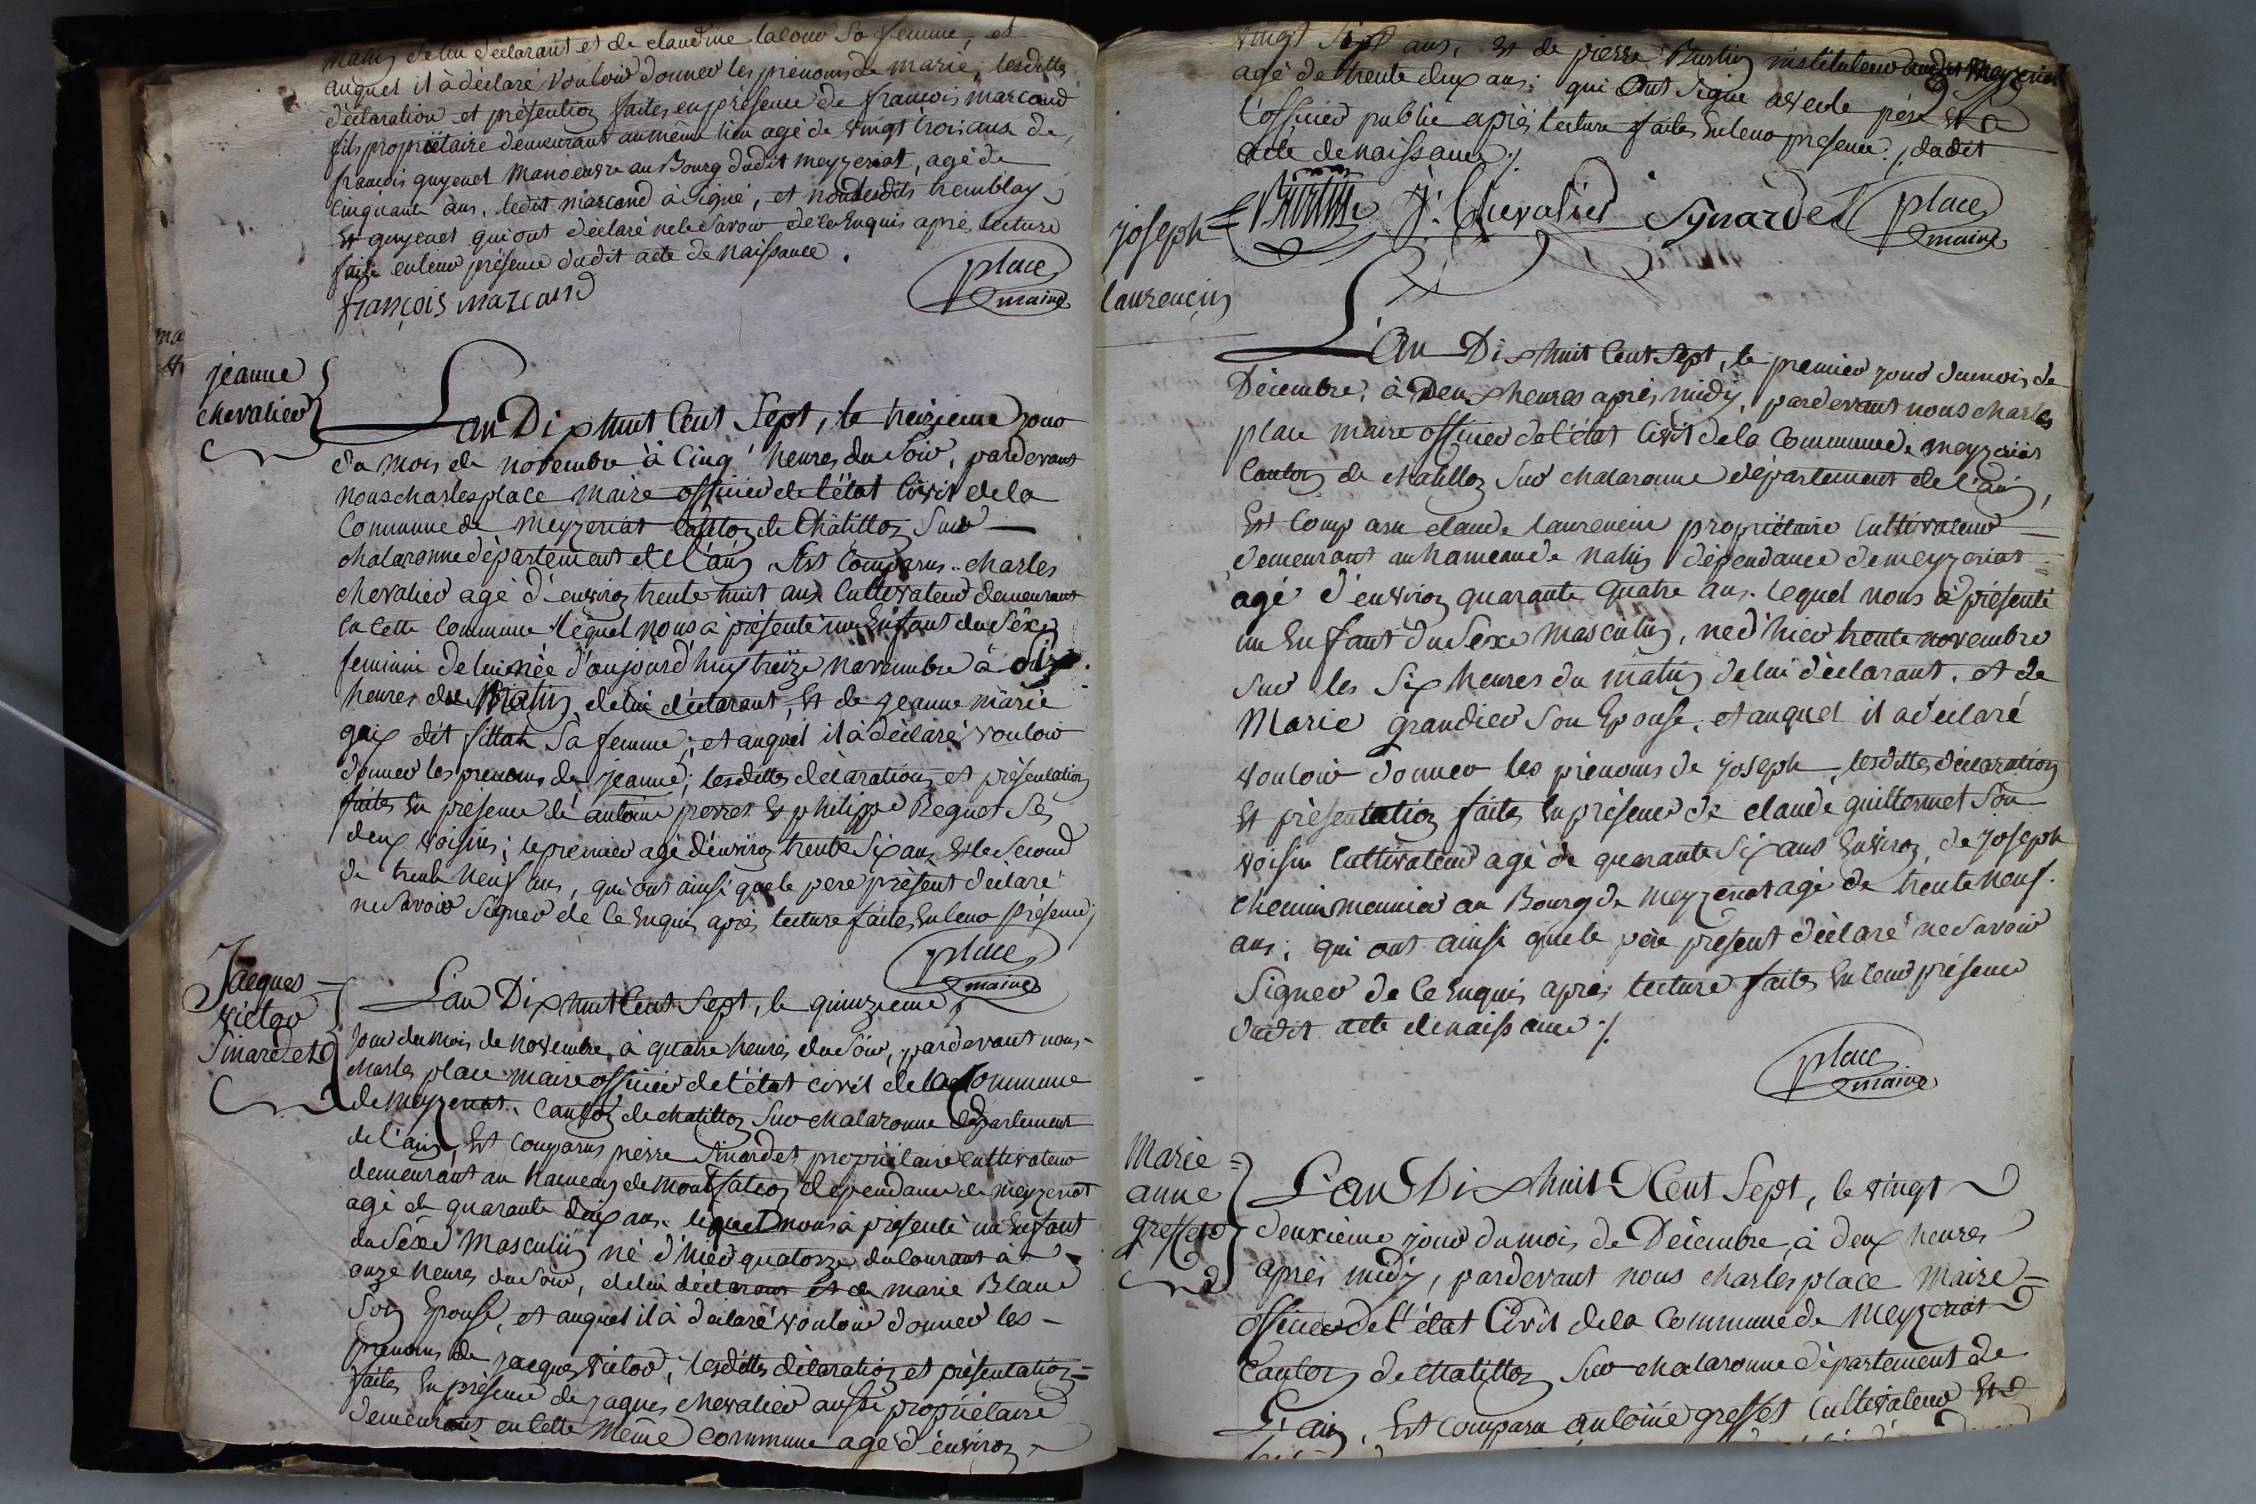 matin de lui déclarant et de claudine lacour sa femme, et
auquel il à déclaré vouloir donner les prénoms de marie; lesdittes
déclaration et présention faites en présence de francois marcand
fils propriétaire demeurant au même lieu agé de vingt trois ans de
francois guyenet manoeuvre au Bourg dudit meyzeriat, agé de
cinquante ans. ledit marcand à signé, et non lesdits tremblay
Et guyenet qui ont déclaré ne le savoir de ce Enquis après lecture
faite en leur présence dudit acte de naissance.
françois marcand
place
maire
jeanne
chevalier
L'an Dix huit Cent Sept, le treizieme jour
du mois de novembre à Cinq heures du Soir, pardevant
nous charles place maire officier de l'état Civil de la
Commune de meyzeriat canton de Châtillon Sur
chalaronne département de l'ain, Est Comparus charles
chevalier agé d'environ trente huit ans Cultivateur demeurant
en Cette Commune lequel nous a présenté un Enfant du Séxe
feminin de lui née d'aujourd'huy treize novembre à
heures du Matin de lui déclarant, Et de jeanne marie
gaix dit fillat Sa femme; et auquel il à déclaré vouloir
donner les prenoms de jeanne; lesdittes déclaration et présentation
faites En présence de antoine perret Et philippe Reguet Ses
deux voisins; le premier agé d'environ trente Six ans Et le Second
de trente neuf ans, qui ont ainsi que le pere présent déclaré
ne Savoir Signer de Ce Enquis après lecture faite En leur présence
place
maire
Jacques
victor
Sinardet
L'an Dix huit Cent Sept, le quinzieme
jour du mois de novembre, à quatre heures du Soir, pardevant nous
charles place maire officier de l'état civil de la Commune
de meyzeriat, Canton de chatillon Sur chalaronne département
de l'ain, Est comparus pierre Sinardet propriétaire Cultivateur
demeurant au hameau de montfation dépendance de meyzeriat
agé de quarante deux ans. lequel nous à présenté un Enfant
du Séxe Masculin né d'hier quatorze du Courant à
onze heures du Soir, de lui déclarant et de marie Blanc
Son Epouse, et auquel il à déclaré vouloir donner les
prenoms de jacques victor; lesdittes déclaration et présentation
faites En présence de jaques chevalier aussi propriétaire
demeurant en Cette Même commune agé d'environ
vingt Sept ans, Et de pierre Burtin instituteur audit Meyzeriat
agé de trente deux ans; qui Ont Signé avec le père Et
l'officier public après lecture faites En leur présence, dudit
acte de naissance ./.
Burtin J. Chevalier Synardet place
maire
joseph
laurencin
L'An Dix huit Cent Sept, le premier jour du mois de
Décembre, à Deux heures après midy, pardevant nous charles
place maire officier de l'état Civil de la Commune de meyzeriat
Canton de chatillon Sur chalaronne département de l'ain,
Est Comparu claude laurencin propriétaire Cultivateur
demeurant au hameau de natin dépendance de meyzeriat
agé d'environ quarante quatre ans. lequel nous à présenté
un Enfant du Sexe Masculin, né d'hier trente novembre
Sur les Six heures du matin de lui déclarant, et de
Marie grandier Son Epouse, et auquel il a déclaré
vouloir donner les prénoms de joseph, lesdittes déclaration
Et présentation faites En présence de claude guillermet Son
voisin Cultivateur agé de quarante Six ans Environ, de joseph
chemin meunier au Bourg de meyzeriat agé de trente neuf
ans; qui ont ainsi que le père présent déclaré ne Savoir
Signer de Ce Enquis après lecture faites En leur présence
dudit acte de naissance ./.
place
maire
Marie
anne
gresset
L'an Dix huit Cent Sept, le vingt
deuxième jour du mois de Décembre, à deux heures
après midy, pardevant nous charles place Maire
officier de l'état Civil de la Commune de Meyzeriat
Canton de Chatillon Sur chalaronne département de
L'ain, Est comparu antoine gresset Cultivateur Et